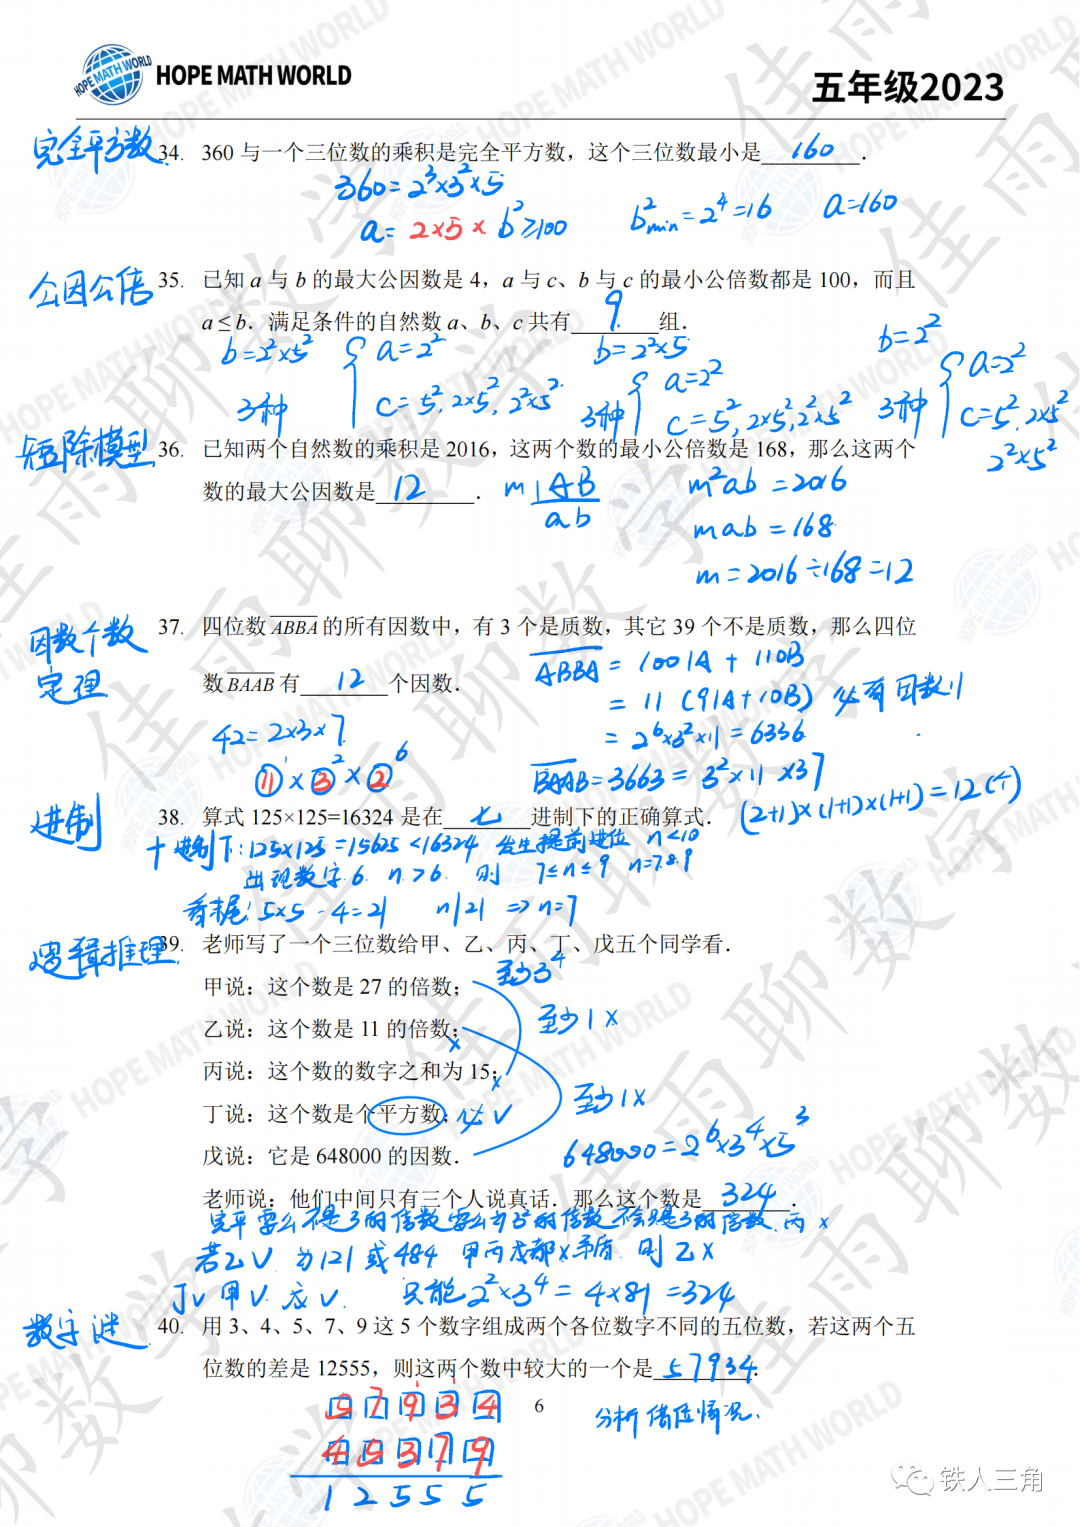 HOPE MATH WORLD
五年级2023
完全平方数
34. 360 与一个三位数的乘积是完全平方数，这个三位数最小是 160 .
360=2³×3²×5
a= 2×5× b²≥100
b²min=2⁴=16
a=160
公因公倍
35. 已知 a 与 b 的最大公因数是 4，a 与 c、b 与 c 的最小公倍数都是 100，而且
a ≤ b．满足条件的自然数 a、b、c 共有 9 组．
b=2²×5² { a=2²
3种 c=5², 2×5², 2²×5²
b=2²×5 { a=2²
3种 c=5², 2×5², 2²×5²
b=2² { a=2²
3种 c=5², 2×5²
2²×5²
短除模型
36. 已知两个自然数的乘积是 2016，这两个数的最小公倍数是 168，那么这两个
数的最大公因数是 12 ．
m | A B
a b
m²ab=2016
mab=168
m=2016÷168=12
因数个数
定理
37. 四位数 ABBA 的所有因数中，有 3 个是质数，其它 39 个不是质数，那么四位
数 BAAB 有 12 个因数．
ABBA = 1001A + 110B
= 11 (91A+10B) 必有因数11
= 2⁶×3²×11=6336
42=2×3×7
11¹×3²×2⁶
BAAB=3663=3²×11×37
(2+1)×(1+1)×(1+1)=12(个)
进制
38. 算式 125×125=16324 是在 七 进制下的正确算式．
十进制下: 125×125=15625<16324 发生提前进位 n<10
出现数字6 n>6 则 7≤n≤9 n=7.8.9
看末尾: 5×5-4=21 n|21 ⇒n=7
逻辑推理
39. 老师写了一个三位数给甲、乙、丙、丁、戊五个同学看．
甲说：这个数是 27 的倍数；
至少3⁴
乙说：这个数是 11 的倍数；×
至少1×
丙说：这个数的数字之和为 15；×
丁说：这个数是个平方数；必√
至少1×
戊说：它是 648000 的因数．
648000=2⁶×3⁴×5³
老师说：他们中间只有三个人说真话．那么这个数是 324 ．
完平要么不是3的倍数 要么是9的倍数 丙×
若乙√ 为121或484 甲丙戊都×矛盾 则乙×
丁√ 甲√ 戊√ 只能2²×3⁴=4×81=324
数字谜
40. 用 3、4、5、7、9 这 5 个数字组成两个各位数字不同的五位数，若这两个五
位数的差是 12555，则这两个数中较大的一个是 57934 ．
5 7 9 3 4
4 5 3 7 9
1 2 5 5 5
6
分析借位情况.
铁人三角